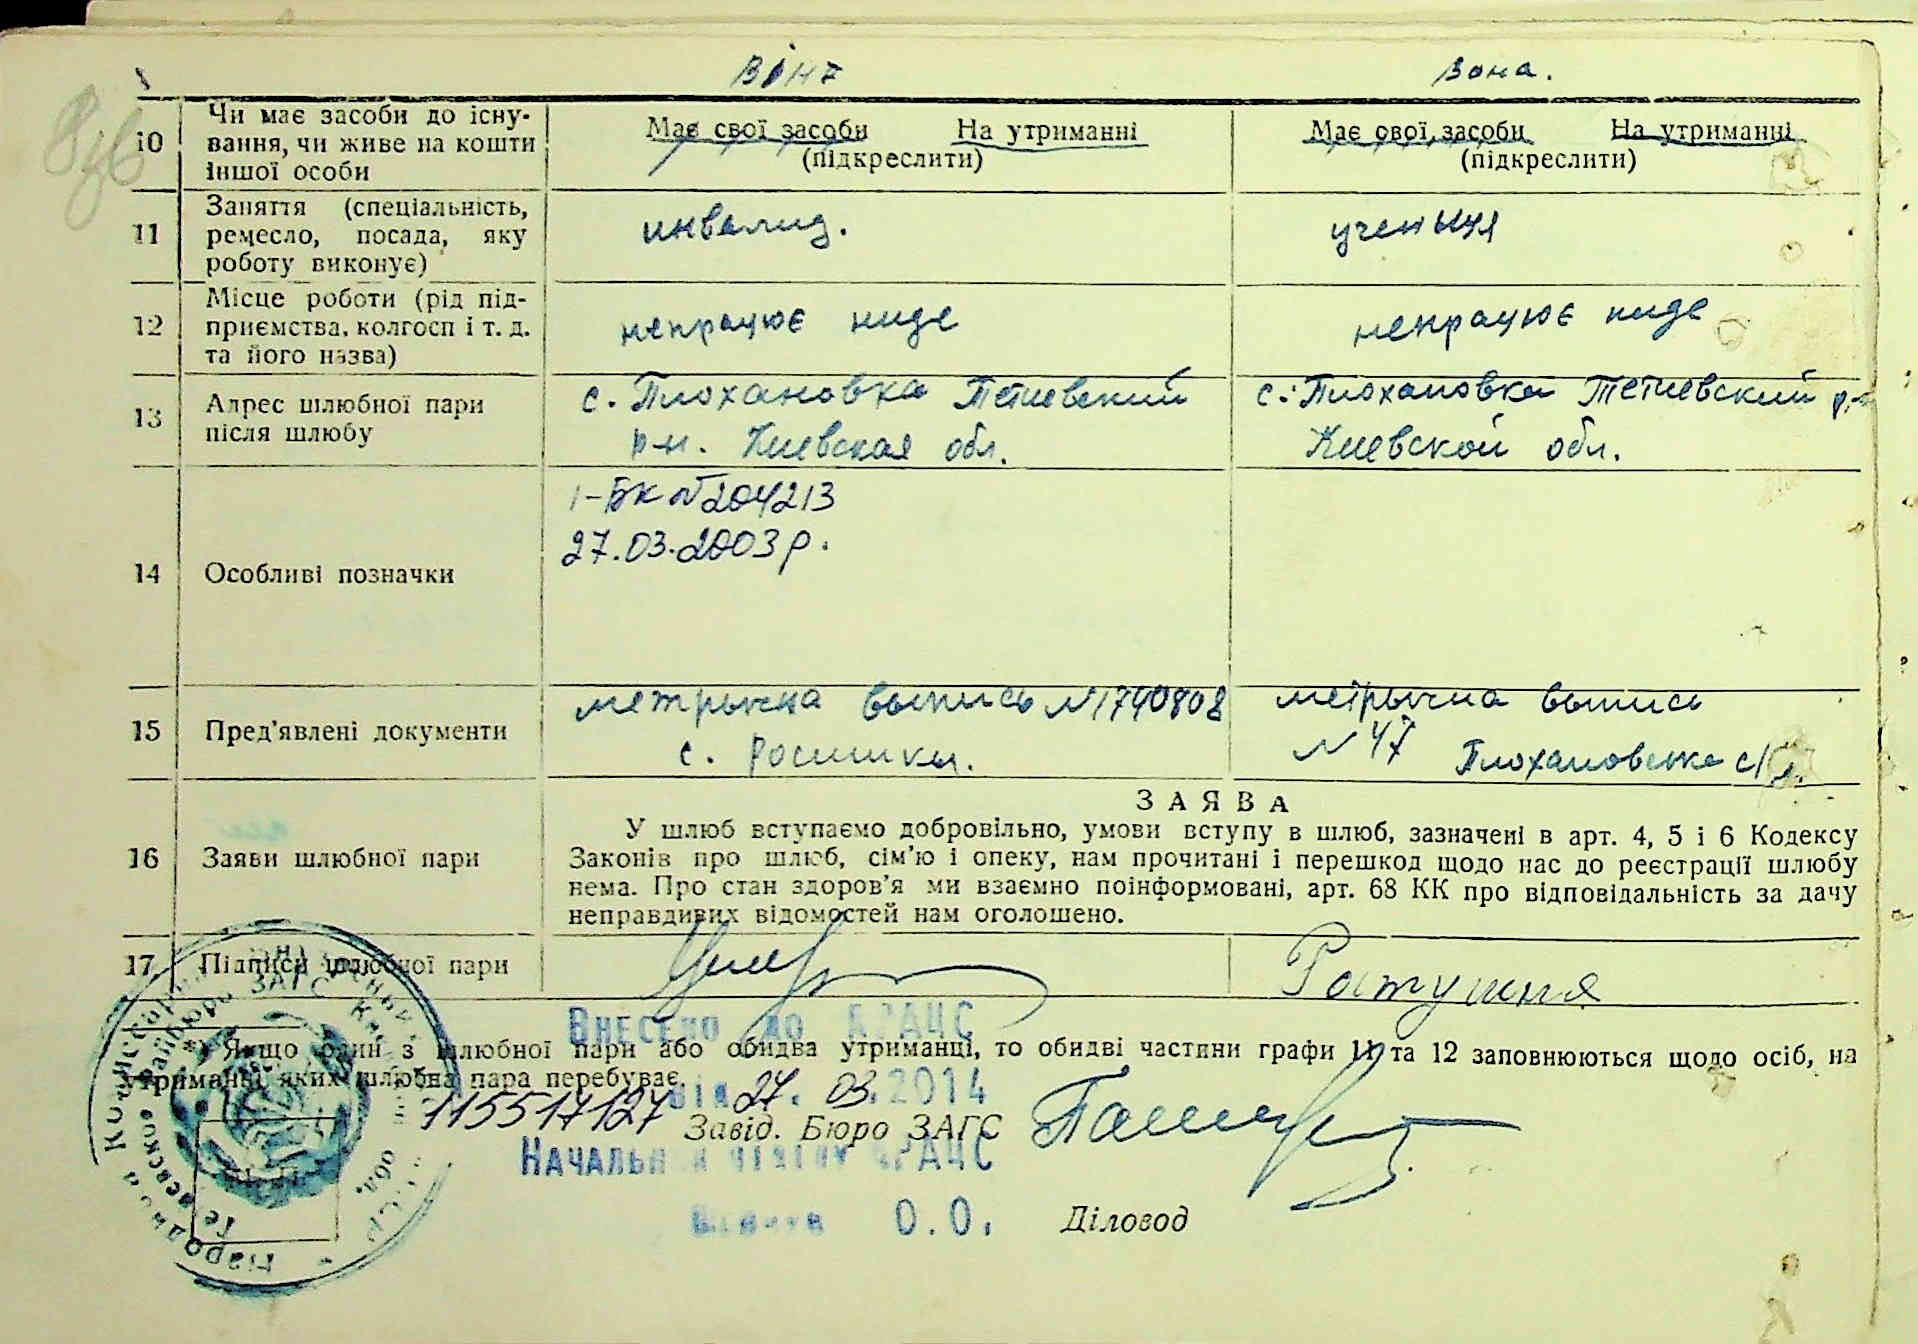 Він Вона.
10 Чи має засоби до існу- Має свої засоби На утриманні Має свої засоби На утриманні
вання, чи живе на кошти (підкреслити) (підкреслити)
іншої особи
11 Заняття (спеціальність, инвалид. учениця
ремесло, посада, яку
роботу виконує)
12 Місце роботи (рід під- непрацює ниде непрацює ниде
приємства, колгосп і т. д.
та його назва)
13 Адрес шлюбної пари с. Плохановка Тетиевский с. Плохановка Тетиевский р-н
після шлюбу р-н. Киевская обл. Киевской обл.
14 Особливі позначки 1-БК №204213
27.03.2003р.
15 Пред'явлені документи метрычна выпись №1740808 метрычна выпись
с. Росишки. №47 Плохановська с/р.
З А Я В А
16 Заяви шлюбної пари У шлюб вступаємо добровільно, умови вступу в шлюб, зазначені в арт. 4, 5 і 6 Кодексу
Законів про шлюб, сім'ю і опеку, нам прочитані і перешкод щодо нас до реєстрації шлюбу
нема. Про стан здоров'я ми взаємно поінформовані, арт. 68 КК про відповідальність за дачу
неправдивих відомостей нам оголошено.
17 Підписи шлюбної пари Ратушня
Внесено до ДРАЦС
*) Якщо один з шлюбної пари або обидва утриманці, то обидві частини графи 11 та 12 заповнюються щодо осіб, на
утриманні яких шлюбна пара перебуває.
115517127 від 27. 03. 2014
Завід. Бюро ЗАГС
Начальник відділу ДРАЦС
О.О. Діловод